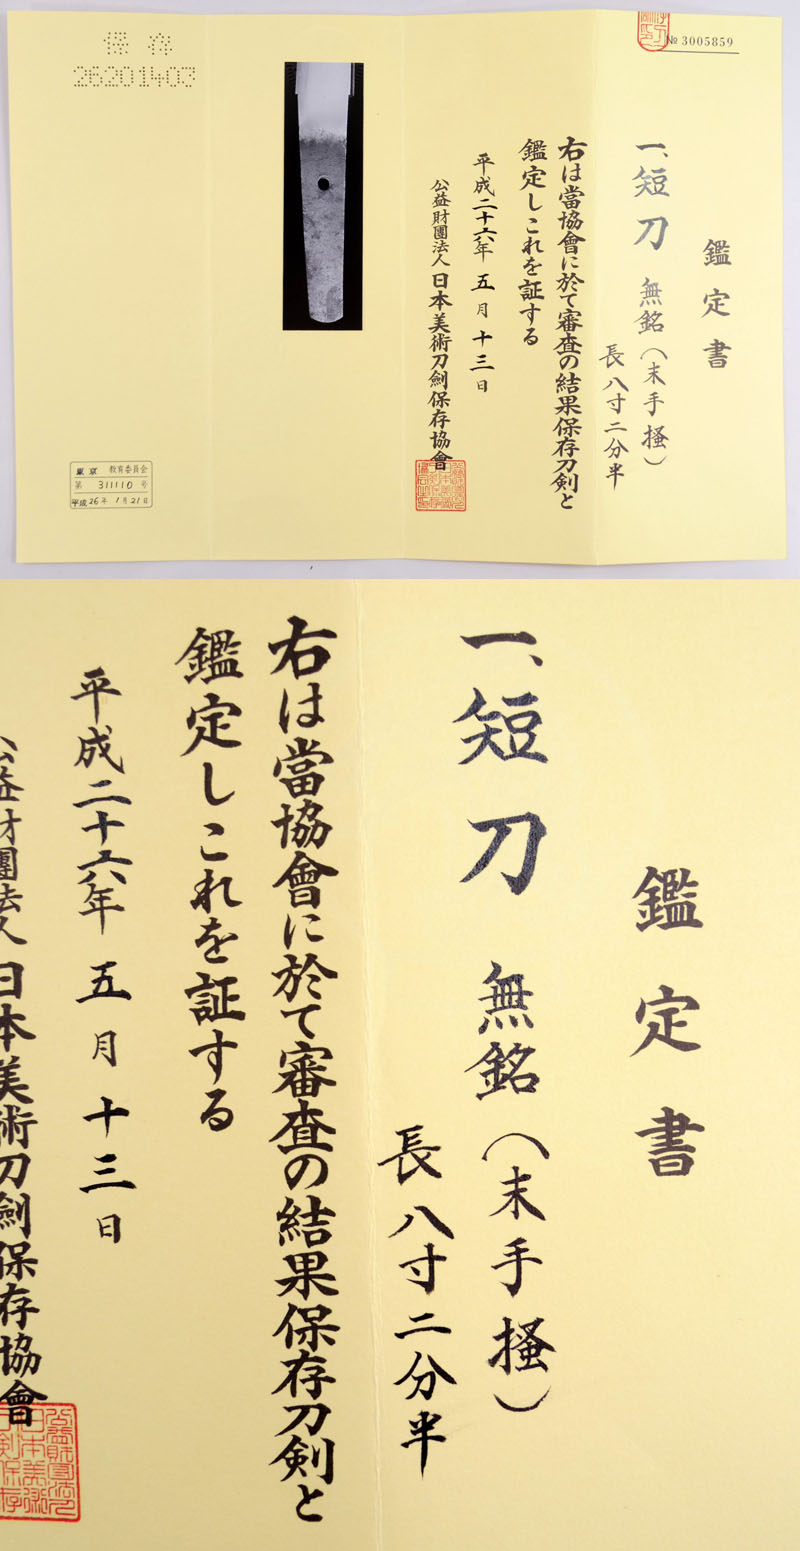 № 3005859
鑑定書
一、短刀 無銘(末手掻)
長八寸二分半
右は當協會に於て審査の結果保存刀剣と
鑑定しこれを証する
平成二十六年 五月十三日
公益財團法人 日本美術刀劍保存協會
保存
26201403
東京 教育委員会
第 311110 号
平成26年 1月21日
鑑定書
一、短刀 無銘(末手掻)
長八寸二分半
右は當協會に於て審査の結果保存刀剣と
鑑定しこれを証する
平成二十六年 五月十三日
公益財團法人 日本美術刀劍保存協會